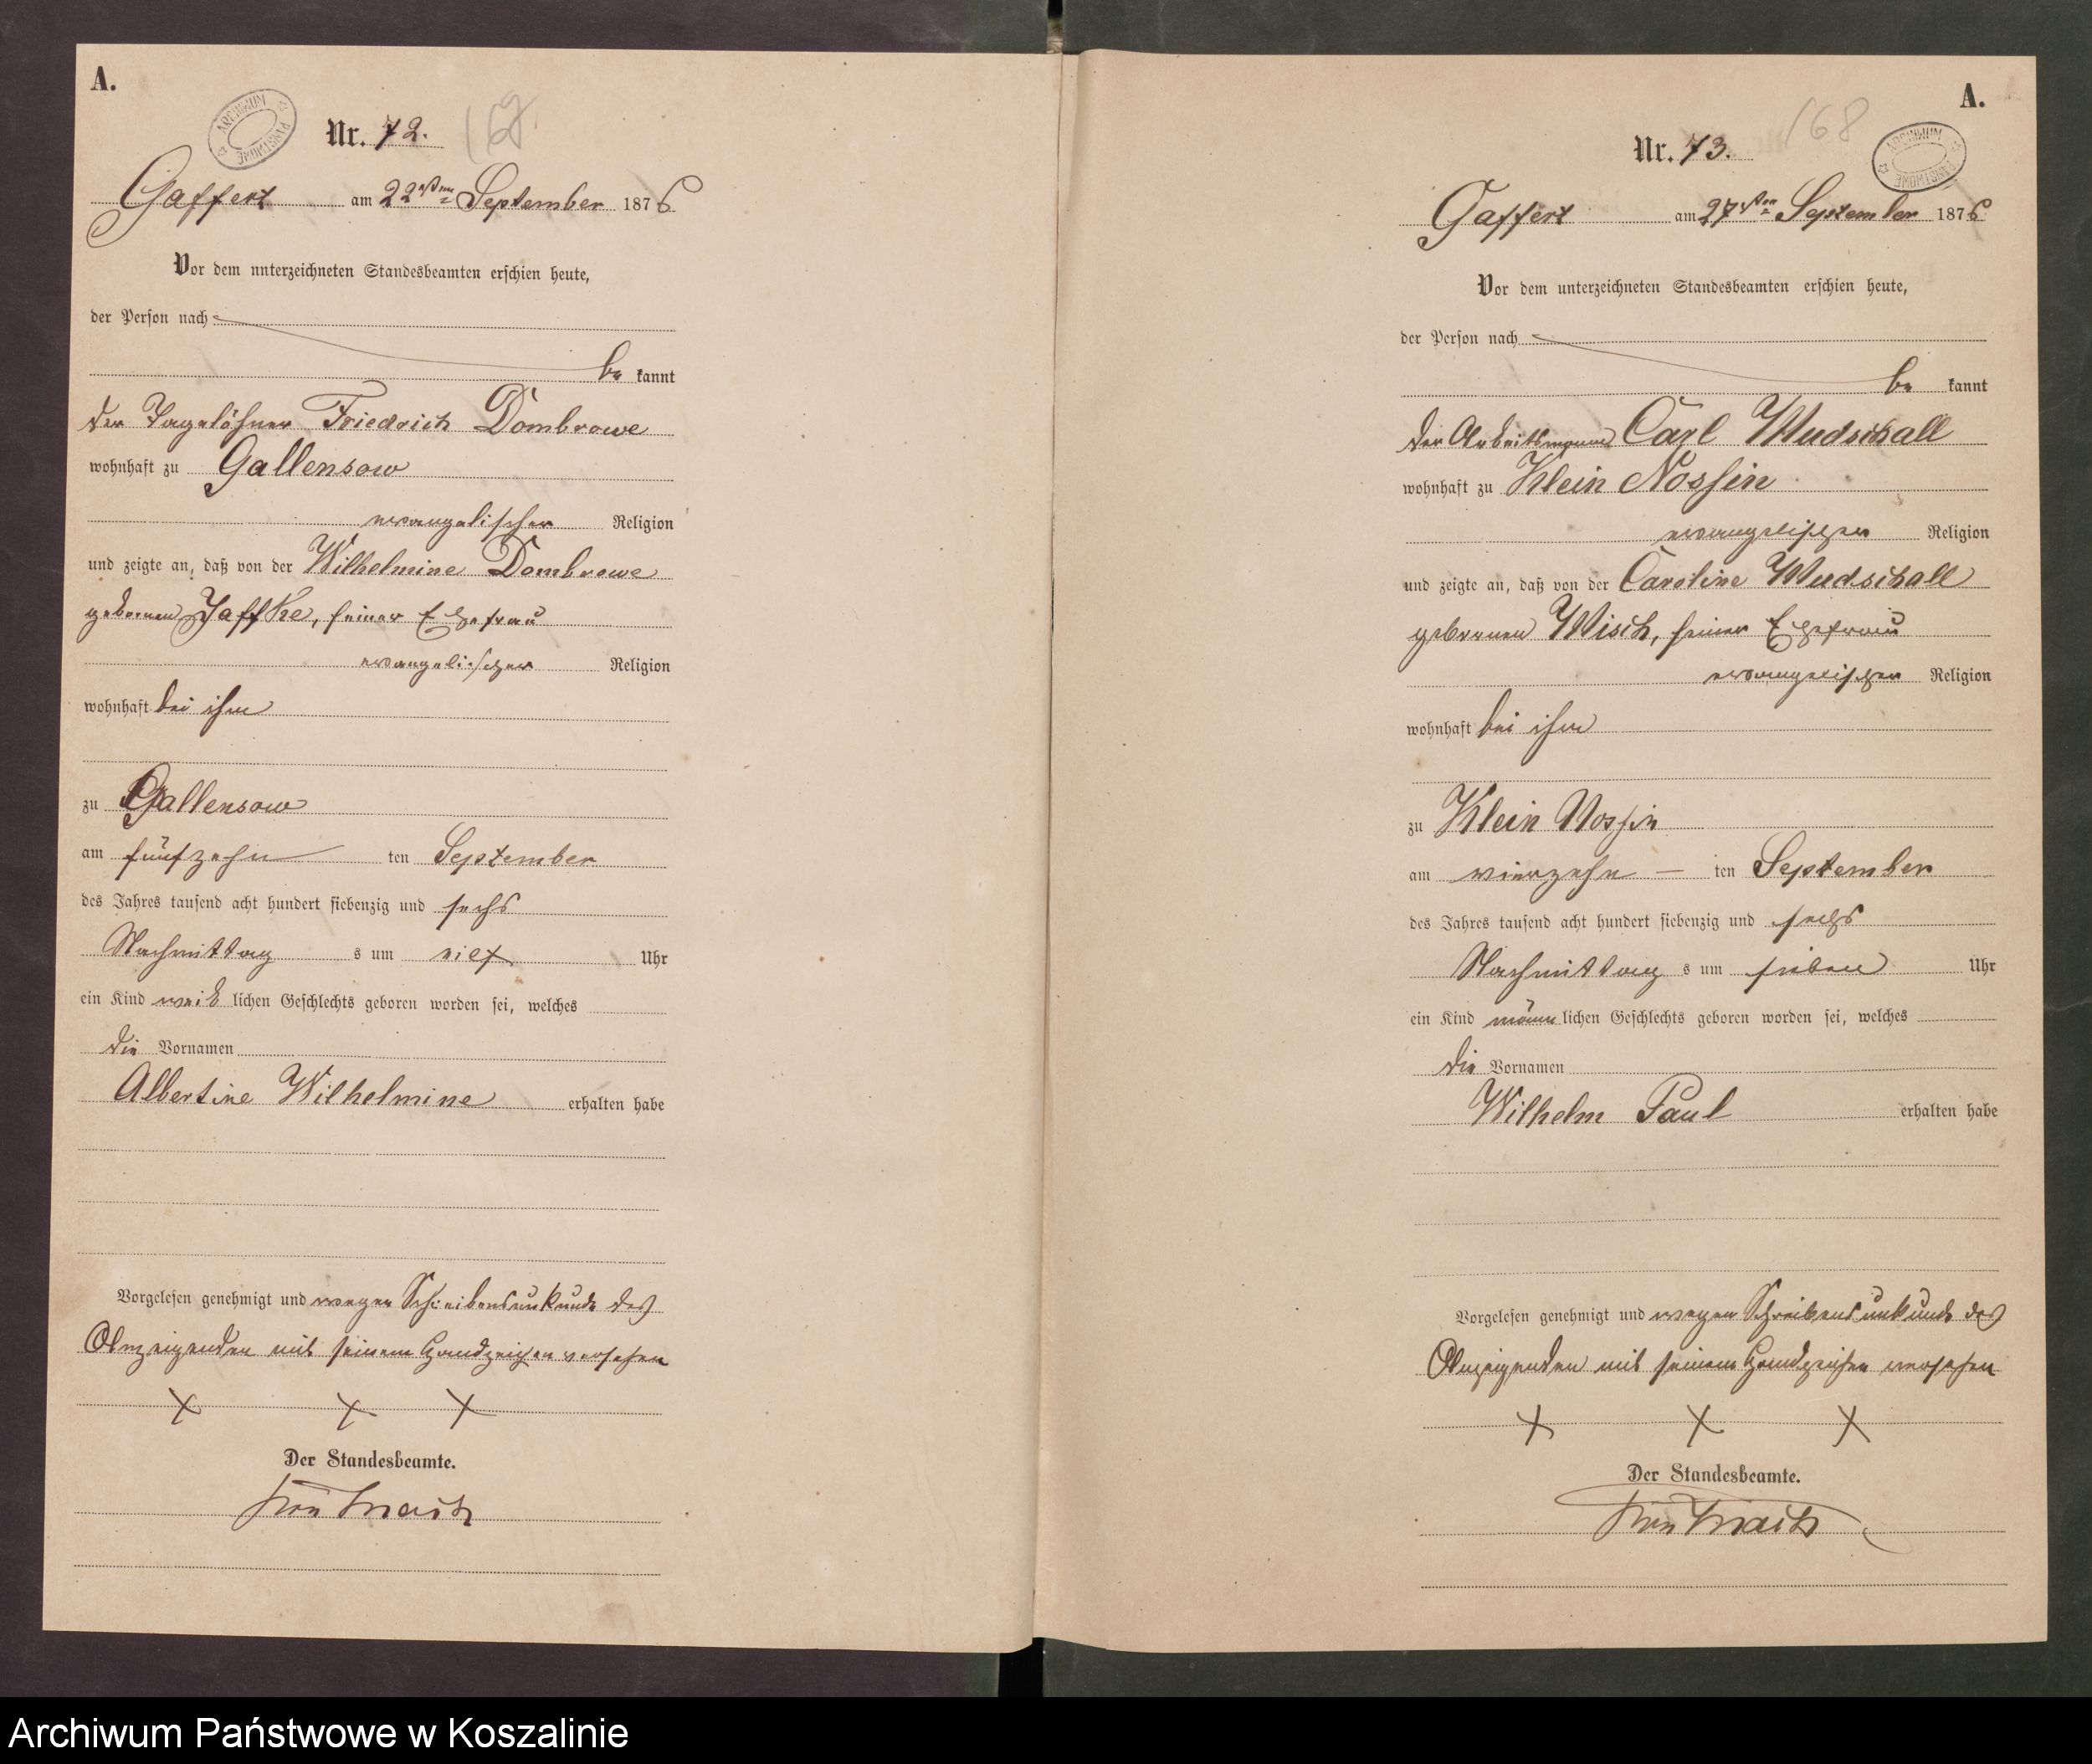 A.
ARCHIWUM PAŃSTWOWE
Nr. 72.
Gaffert am 22sten September 1876
Vor dem unterzeichneten Standesbeamten erschien heute,
der Person nach
be kannt
der Tagelöhner Friedrich Dombrowe
wohnhaft zu Gallensow
evangelischer Religion
und zeigte an, daß von der Wilhelmine Dombrowe
gebornen Jaffke, seiner Ehefrau
evangelischer Religion
wohnhaft bei ihm
zu Gallensow
am fünfzehn ten September
des Jahres tausend acht hundert siebenzig und sechs
Nachmittag s um elf Uhr
ein Kind weib lichen Geschlechts geboren worden sei, welches
die Vornamen
Albertine Wilhelmine erhalten habe
Vorgelesen genehmigt und wegen Schreibensunkunde des
Anzeigenden mit seinem Handzeichen versehen
× × ×
Der Standesbeamte.
A.
168
ARCHIWUM PAŃSTWOWE
Nr. 73.
Gaffert am 27sten September 1876
Vor dem unterzeichneten Standesbeamten erschien heute,
der Person nach
be kannt
der Arbeitsmann Carl Wudschall
wohnhaft zu Klein Nossin
evangelischer Religion
und zeigte an, daß von der Caroline Wudschall
gebornen Wisch, seiner Ehefrau
evangelischer Religion
wohnhaft bei ihm
zu Klein Nossin
am vierzehn — ten September
des Jahres tausend acht hundert siebenzig und sechs
Nachmittag s um sieben Uhr
ein Kind männ lichen Geschlechts geboren worden sei, welches
die Vornamen
Wilhelm Paul erhalten habe
Vorgelesen genehmigt und wegen Schreibensunkunde des
Anzeigenden mit seinem Handzeichen versehen
× × ×
Der Standesbeamte.
Archiwum Państwowe w Koszalinie